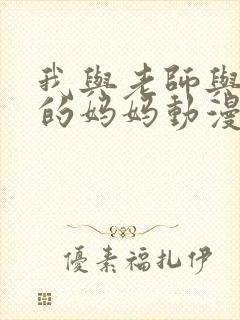 我與老師與
的妈妈動漫
優素福扎伊